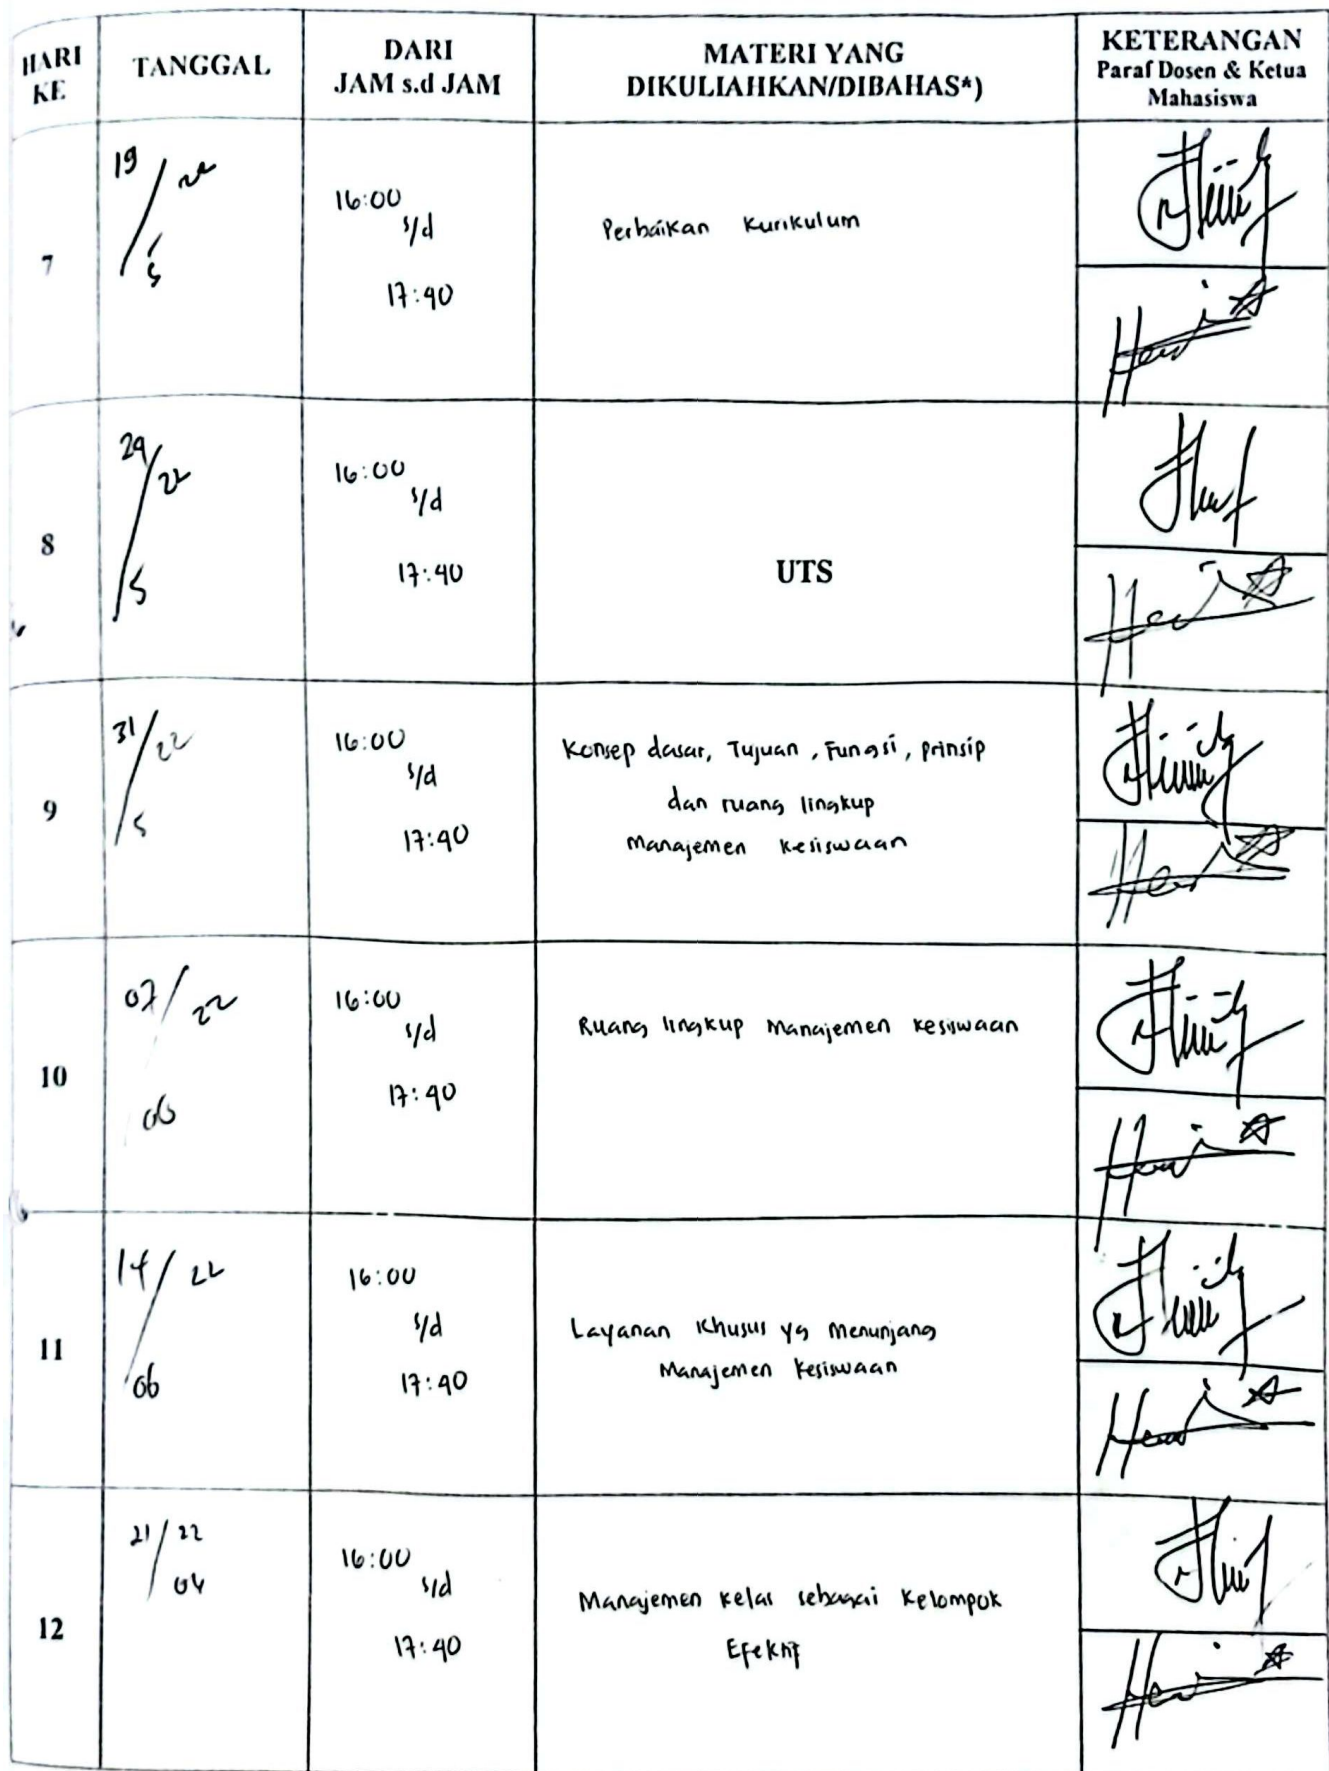 HARI
KE
TANGGAL
DARI
JAM s.d JAM
MATERI YANG
DIKULIAHKAN/DIBAHAS*)
KETERANGAN
Paraf Dosen & Ketua
Mahasiswa
7
19/22
5
16:00
s/d
17:40
Perbaikan Kurikulum
8
24/22
5
16:00
s/d
17:40
UTS
9
31/22
5
16:00
s/d
17:40
Konsep dasar, Tujuan, Fungsi, prinsip
dan ruang lingkup
Manajemen kesiswaan
10
07/22
06
16:00
s/d
17:40
Ruang lingkup Manajemen kesiswaan
11
14/22
06
16:00
s/d
17:40
Layanan Khusus yg Menunjang
Manajemen kesiswaan
12
21/22
16:00
s/d
17:40
Manajemen kelas sebagai Kelompok
Efektif